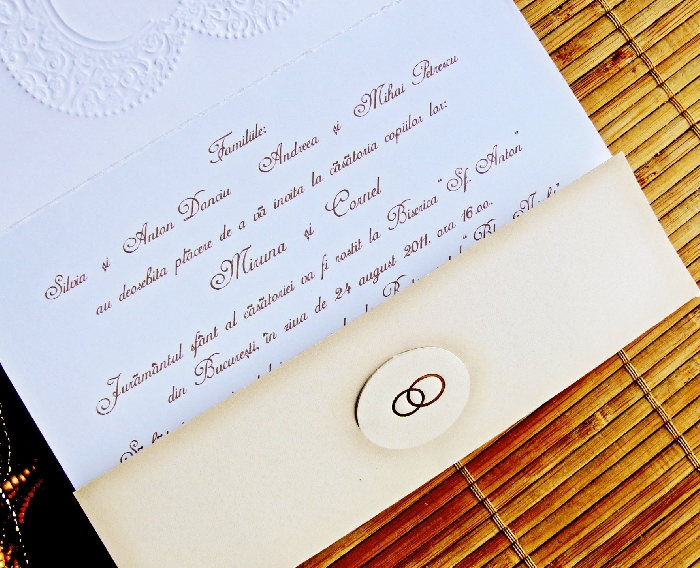 Familiile:
Silvia și Anton Danciu Andreea și Mihai Petrescu
au deosebita plăcere de a vă invita la căsătoria copiilor lor:
Miruna și Cornel
Jurământul sfânt al căsătoriei va fi rostit la Biserica "Sf. Anton"
din București, în ziua de 24 august 2011, ora 16.00.